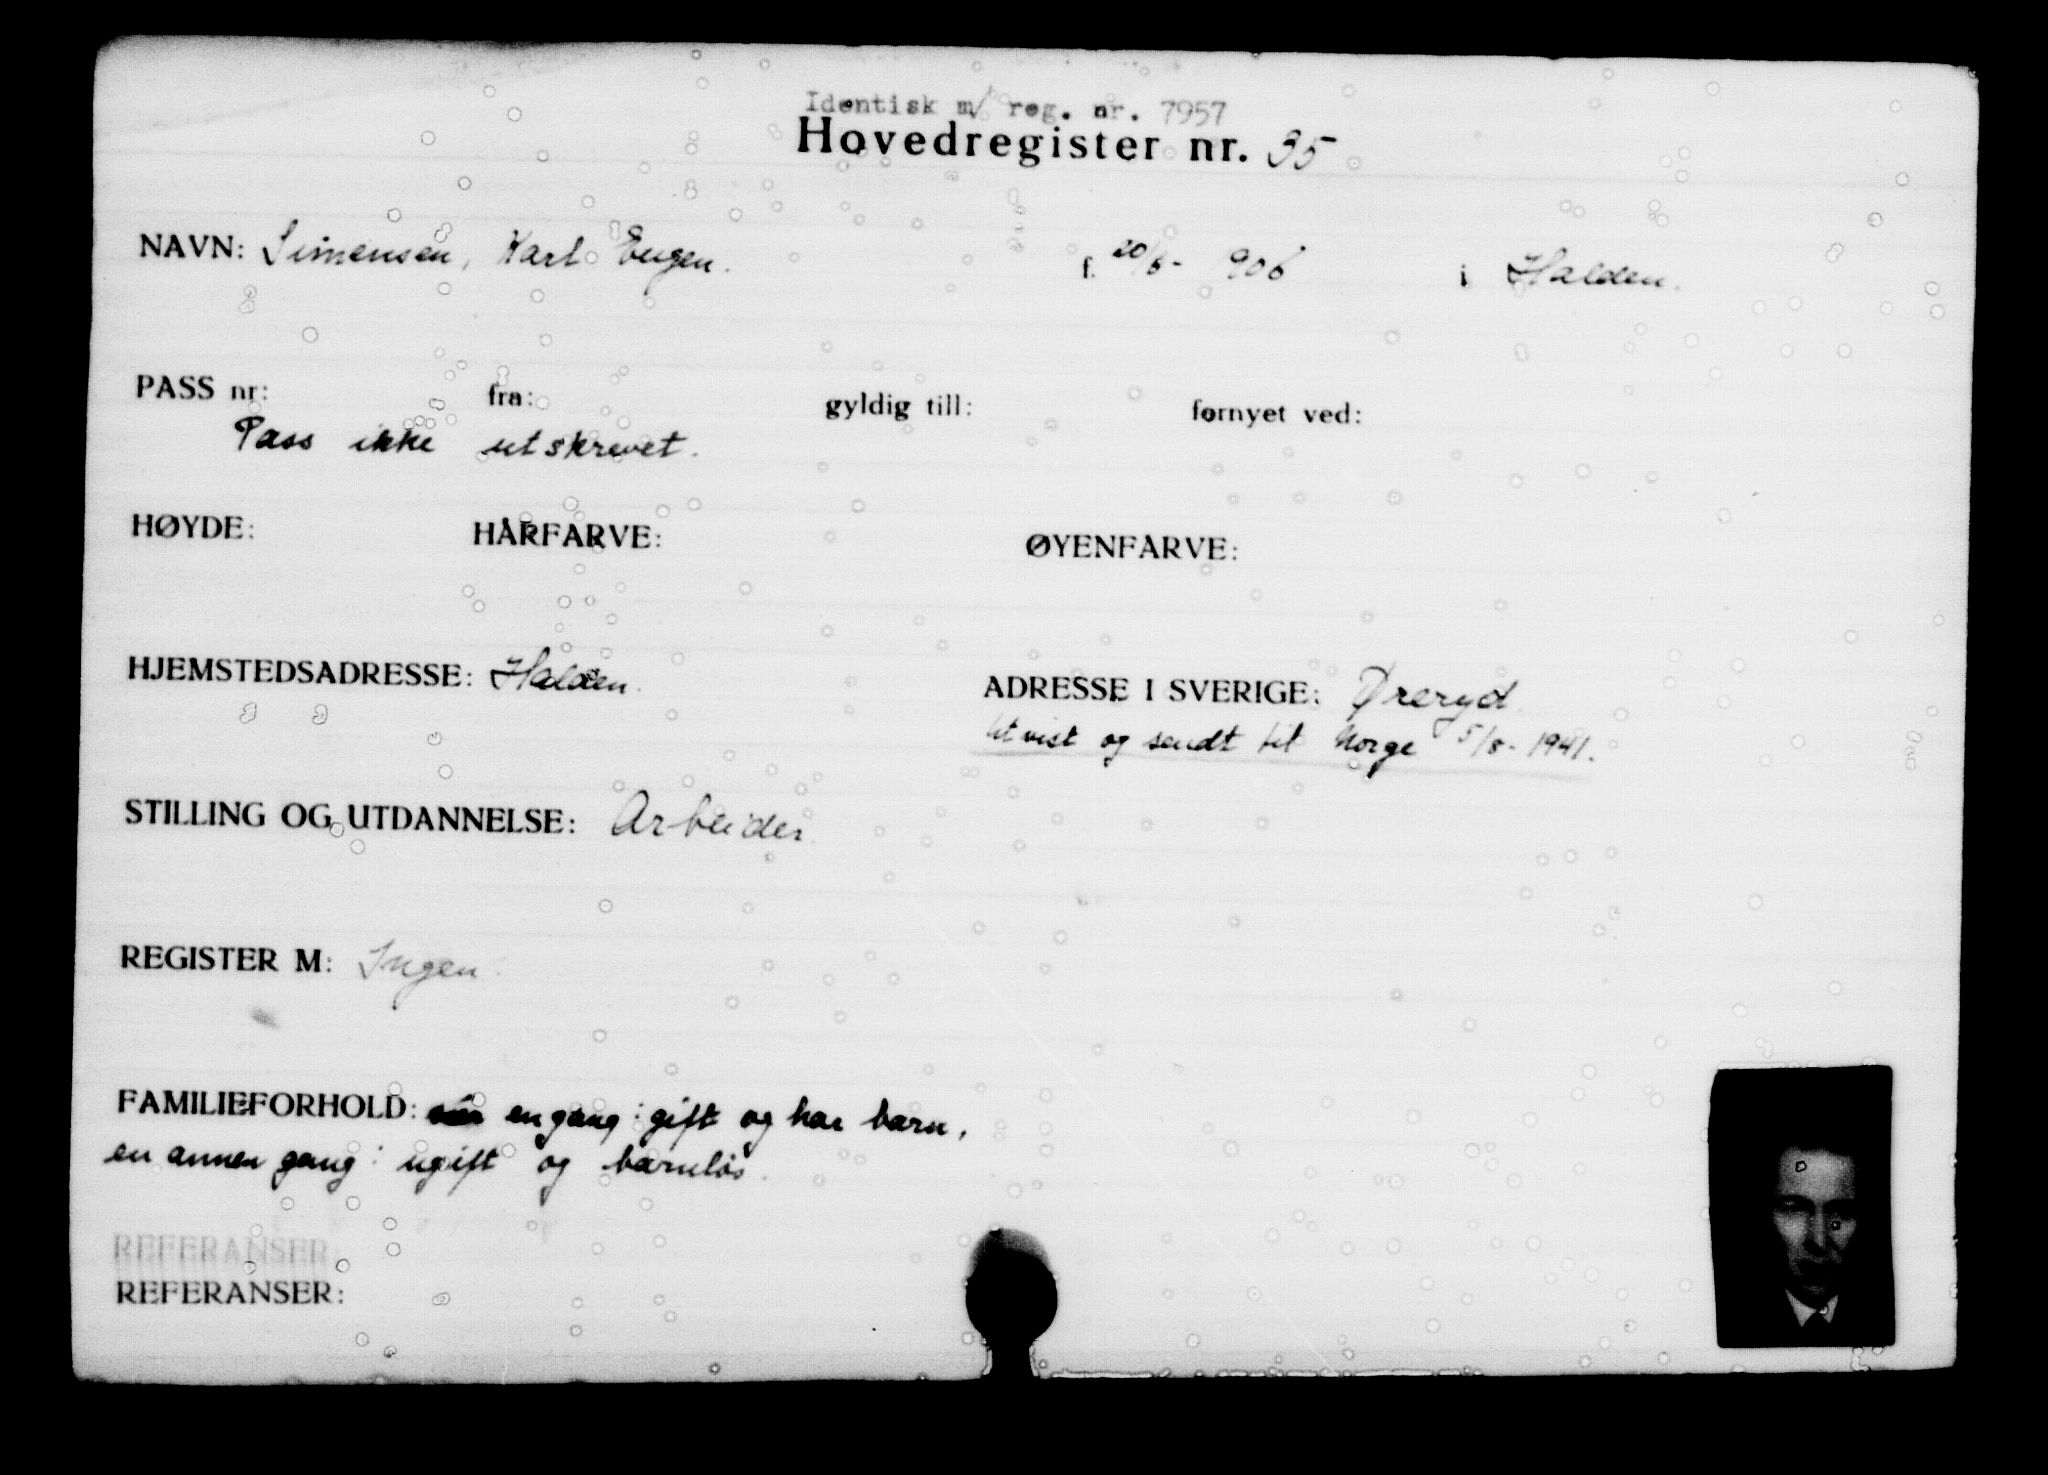 Identisk m/ reg. nr. 7957
Hovedregister nr. 35
NAVN: Simensen, Karl Eugen. f. 20/6- 906 i Halden.
PASS nr: fra: gyldig till: fornyet ved:
Pass ikke utskrevet.
HØYDE: HÅRFARVE: ØYENFARVE:
HJEMSTEDSADRESSE: Halden. ADRESSE I SVERIGE: Øreryd.
Utvist og sendt til Norge 5/8- 1941.
STILLING OG UTDANNELSE: Arbeider.
REGISTER M: Ingen.
FAMILIEFORHOLD: en gang: gift og har barn,
en annen gang: ugift og barnløs.
REFERANSER
REFERANSER: